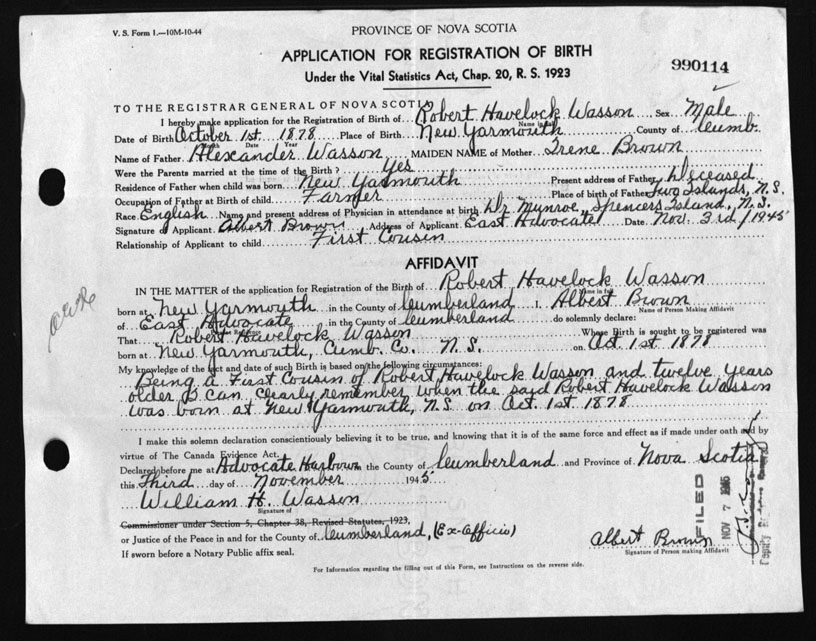 V. S. Form 1.—10M-10-44
PROVINCE OF NOVA SCOTIA
APPLICATION FOR REGISTRATION OF BIRTH
Under the Vital Statistics Act, Chap. 20, R. S. 1923
990114
TO THE REGISTRAR GENERAL OF NOVA SCOTIA
I hereby make application for the Registration of Birth of Robert Havelock Wasson Sex Male
Name in full
Date of Birth October 1st 1878 Place of Birth New Yarmouth County of Cumb.
Month Date Year
Name of Father Alexander Wasson MAIDEN NAME of Mother Irene Brown
Were the Parents married at the time of the Birth? Yes
Residence of Father when child was born New Yarmouth Present address of Father Deceased
Occupation of Father at Birth of child Farmer Place of birth of Father Two Islands, N.S.
Race English Name and present address of Physician in attendance at birth Dr Munroe, Spencers Island, N.S.
Signature of Applicant Albert Brown Address of Applicant East Advocate Date Nov. 3rd/1945
Relationship of Applicant to child First Cousin
AFFIDAVIT
IN THE MATTER of the application for Registration of the Birth of Robert Havelock Wasson
Name in full
born at New Yarmouth in the County of Cumberland I, Albert Brown
Name of Person Making Affidavit
of East Advocate in the County of Cumberland do solemnly declare:
That Robert Havelock Wasson Whose Birth is sought to be registered was
born at New Yarmouth, Cumb. Co. N.S. on Oct 1st 1878
My knowledge of the fact and date of such Birth is based on the following circumstances:
Being a First Cousin of Robert Havelock Wasson and twelve years
older I can clearly remember when the said Robert Havelock Wasson
was born at New Yarmouth, N.S. on Oct. 1st 1878
I make this solemn declaration conscientiously believing it to be true, and knowing that it is of the same force and effect as if made under oath and by
virtue of The Canada Evidence Act.
Declared before me at Advocate Harbour in the County of Cumberland and Province of Nova Scotia
this Third day of November 1945
William H. Wasson
Signature of
Commissioner under Section 5, Chapter 38, Revised Statutes, 1923,
or Justice of the Peace in and for the County of Cumberland, (Ex-Officio)
If sworn before a Notary Public affix seal.
Albert Brown
Signature of Person making Affidavit
FILED
NOV 7 1945
Deputy
For Information regarding the filling out of this Form, see Instructions on the reverse side.